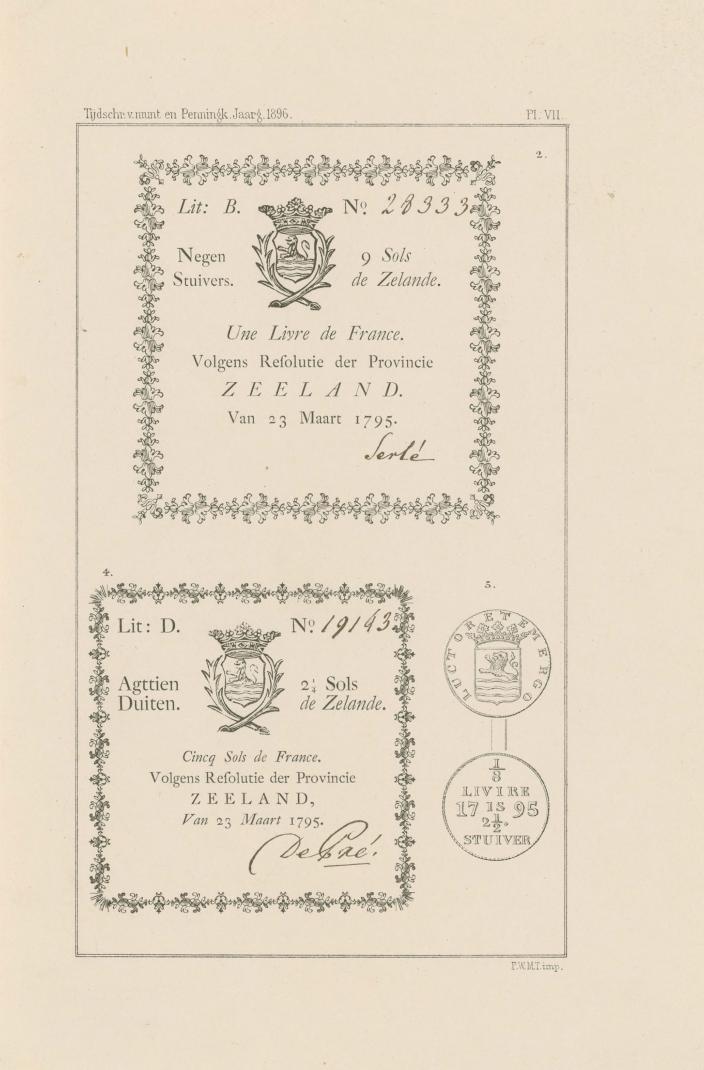 Tijdschr. v. munt en Penningk. Jaarg. 1896.
Pl. VII.
2.
Lit: B. No. 28333
Negen 9 Sols
Stuivers. de Zelande.
Une Livre de France.
Volgens Reſolutie der Provincie
ZEELAND.
Van 23 Maart 1795.
Serlé
4.
Lit: D. No. 19143
Agttien 2¼ Sols
Duiten. de Zelande.
Cincq Sols de France.
Volgens Reſolutie der Provincie
ZEELAND,
Van 23 Maart 1795.
De Pré.
5.
LUCTOR ET EMERGO
1/8
LIVIRE
17 IS 95
2½.
STUIVER
P.W.M.T. imp.